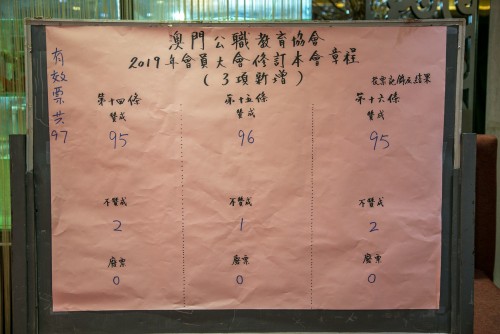 澳門公職教育協會
2019年會員大會修訂本會章程
(3項新增)
投票記錄及結果
有效票共97
第十四條
贊成
95
不贊成
2
廢票
0
第十五條
贊成
96
不贊成
1
廢票
0
第十六條
贊成
95
不贊成
2
廢票
0